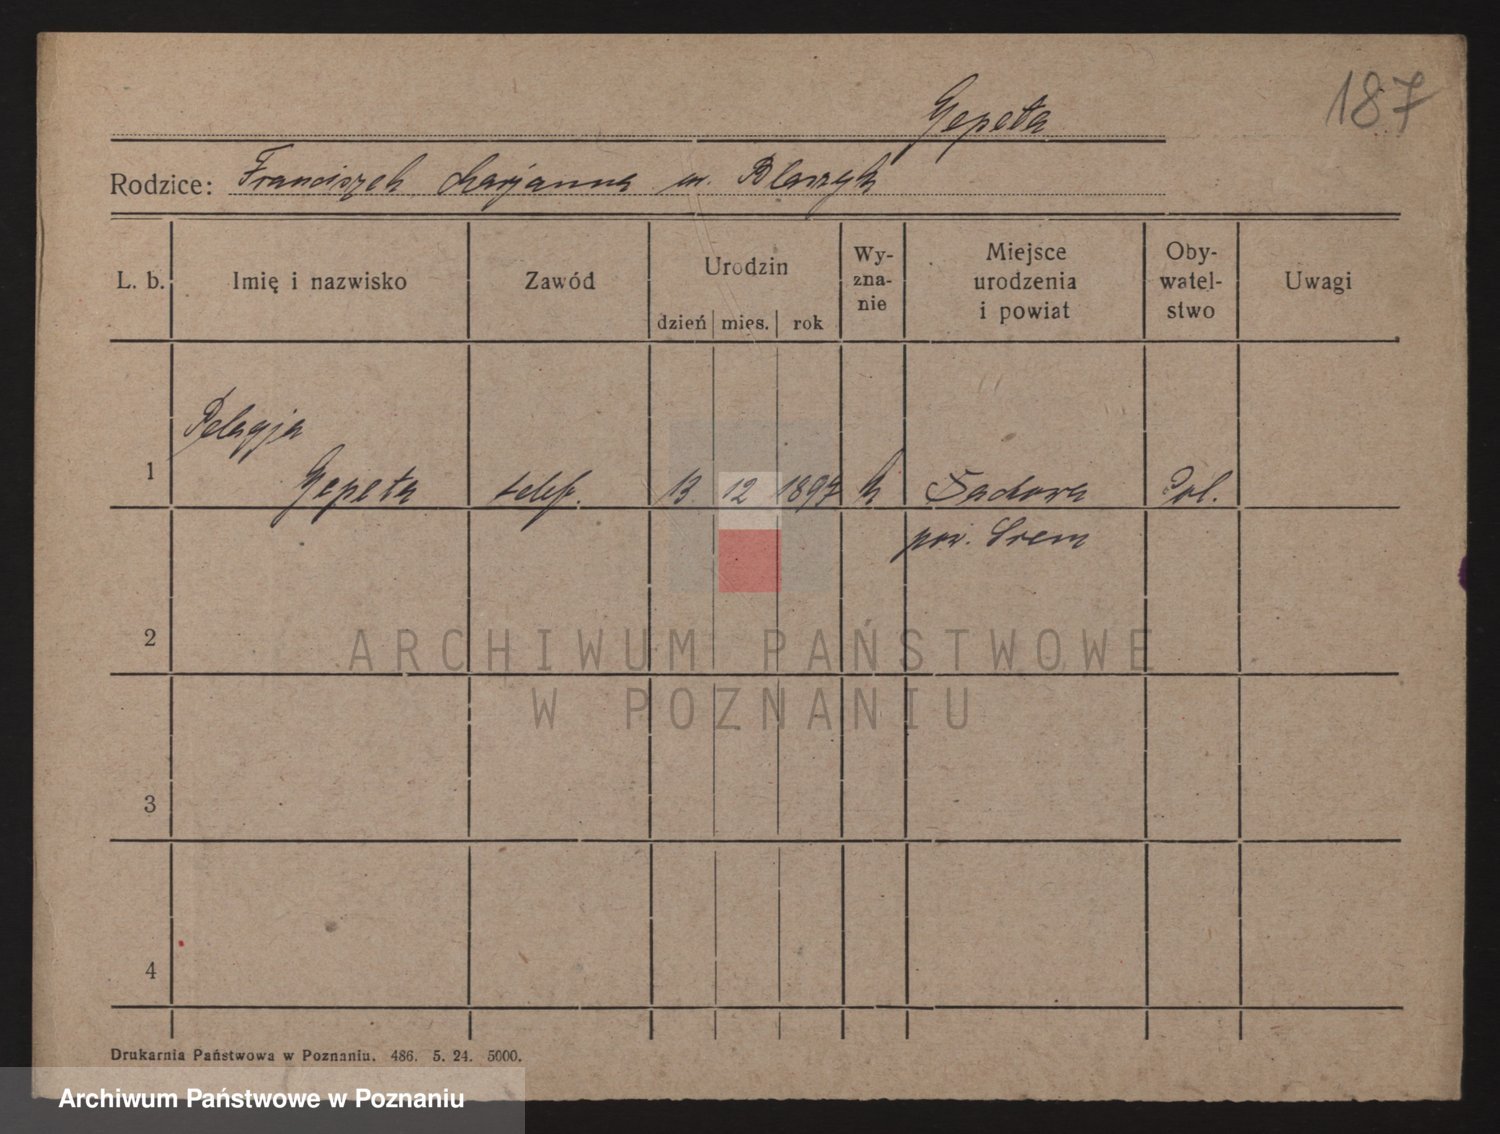 187
Gepeta
Rodzice: Franciszek Marjanna ur. Blaszyk
L. b. Imię i nazwisko Zawód Urodzin Wyznanie Miejsce urodzenia i powiat Obywatelstwo Uwagi
dzień mies. rok
Pelagja
1 Gepeta telef. 13 12 1897 k Sadowa Pol.
pow. Srem
2
ARCHIWUM PAŃSTWOWE
W POZNANIU
3
4
Drukarnia Państwowa w Poznaniu. 486. 5. 24. 5000.
Archiwum Państwowe w Poznaniu